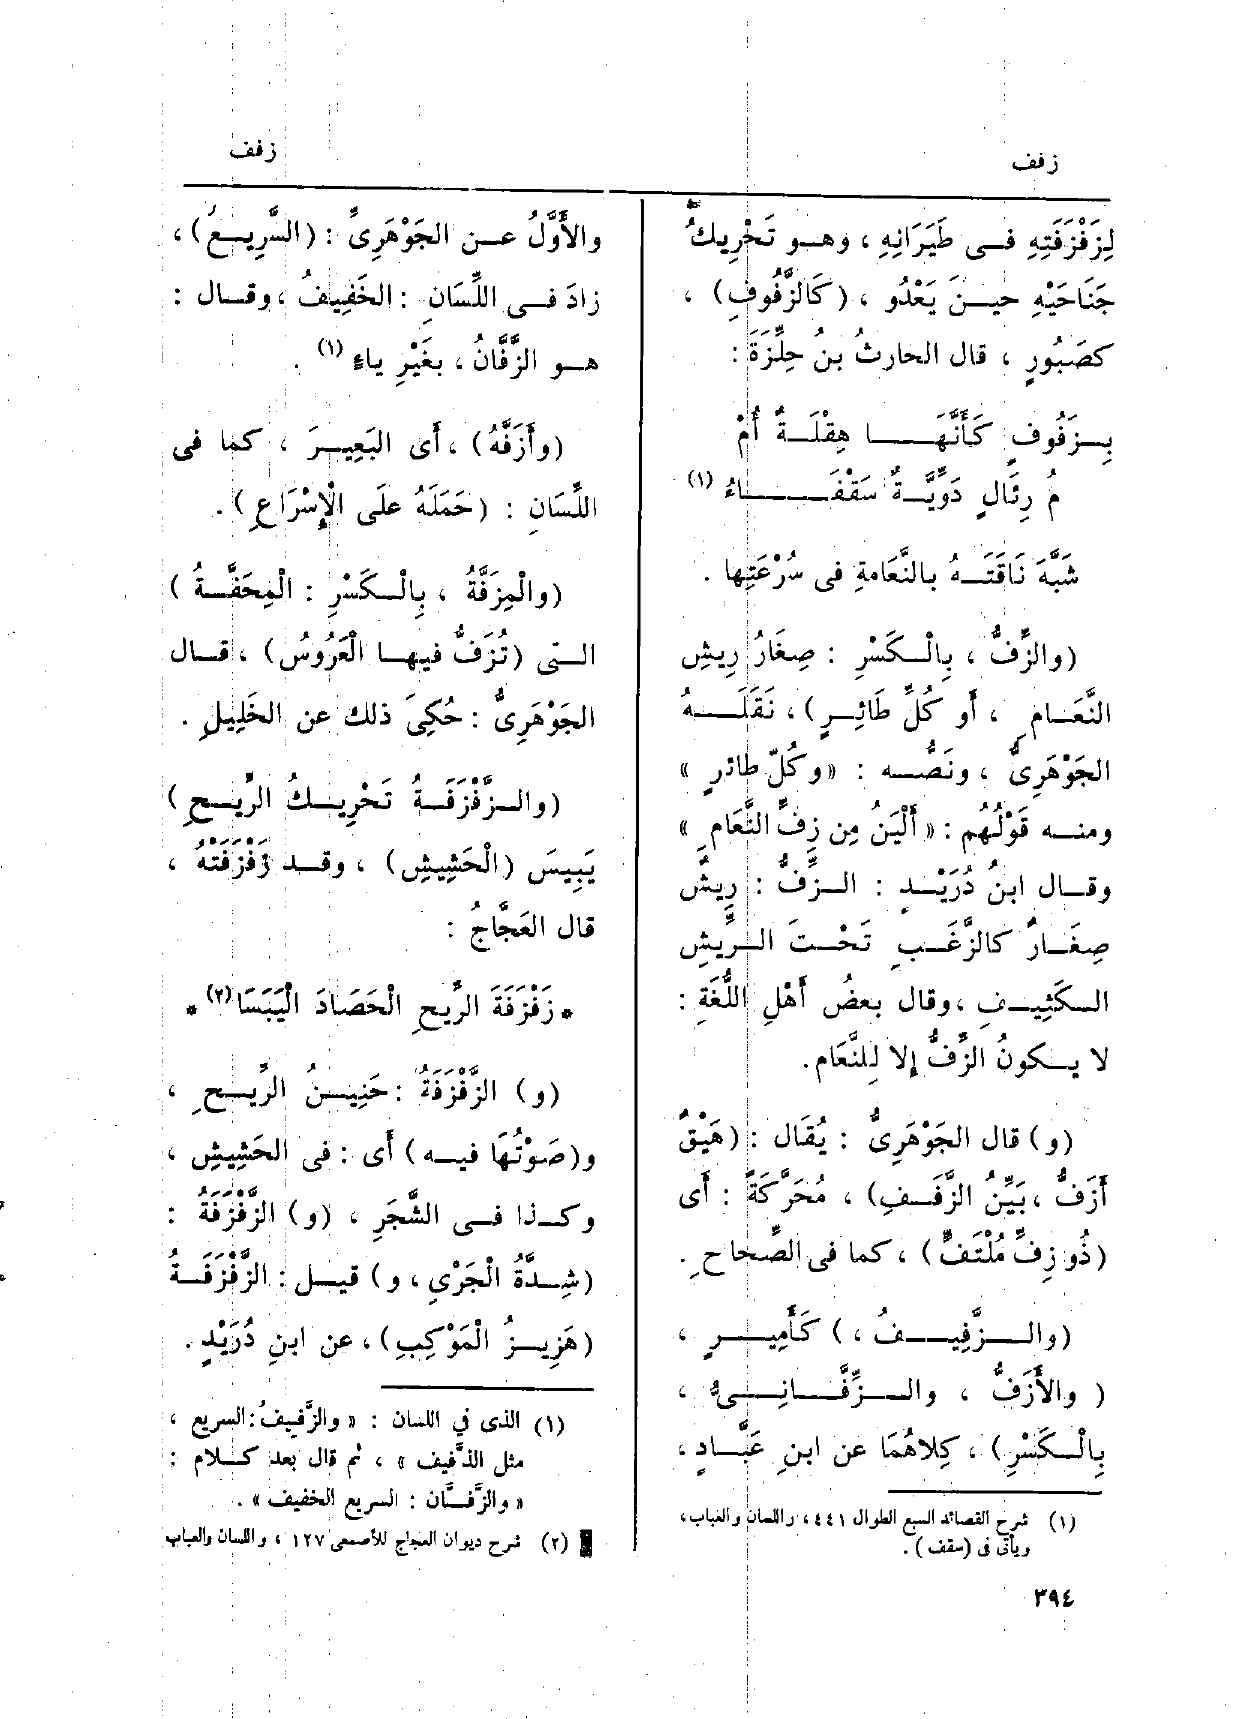 زفف
زفف
لِزَفْزَفَتِهِ فى طَيَرَانِهِ ، وهو تَحْرِيكُ
جَنَاحَيْهِ حينَ يَعْدُو ، (كَالزَّفُوفِ) ،
كصَبُورٍ ، قال الحارثُ بنُ حِلِّزَةَ :
بِزَفُوفٍ كَأَنَّهَا هِقْلَةٌ أُمْ
مُ رِئَالٍ دَوِّيَّةٌ سَقْفَاءُ (١)
شَبَّهَ نَاقَتَهُ بالنَّعَامةِ فى سُرْعَتِها .
(والزِّفُّ ، بِالْكَسْرِ : صِغَارُ رِيشِ
النَّعَامِ ، أو كُلِّ طَائِرٍ) ، نَقَلَهُ
الجَوْهَرِىُّ ، ونَصُّه : «وكُلِّ طائرٍ »
ومنه قَوْلُهُم : « أَلْيَنُ مِن زِفِّ النَّعَامِ »
وقال ابنُ دُرَيْدٍ : الزِّفُّ : رِيشٌ
صِغَارٌ كالزَّغَبِ تَحْتَ الرِّيشِ
الكَثِيفِ ، وقال بعضُ أَهْلِ اللُّغَةِ :
لا يكونُ الزِّفُّ إلا لِلنَّعَام .
(و) قال الجَوْهَرِىُّ : يُقَال : (هَيْقٌ
أَزَفُّ ، بَيِّنُ الزَّفَفِ) ، مُحَرَّكَةً : أى
(ذُو زِفٍّ مُلْتَفٍّ) ، كما فى الصِّحاحِ .
(والزَّفِيفُ ، ) كَأَمِيرٍ ،
( والأَزَفُّ ، والزِّفَّانِىُّ ،
بِالْكَسْرِ) ، كِلاهُمَا عن ابنِ عَبَّادٍ ،
(١) شرح القصائد السبع الطوال ٤٤١ ، واللسان والعباب ،
ويأتى فى (سقف) .
٣٩٤
والأَوَّلُ عن الجَوْهَرِىِّ : (السَّرِيعُ) ،
زادَ فى اللِّسَانِ : الخَفِيفُ ، وقال :
هو الزَّفَّانُ ، بغَيْرِ ياءٍ (١) .
(وأَزَفَّهُ) ، أى البَعِيرَ ، كما فى
اللِّسَانِ : (حَمَلَهُ على الْإِسْرَاعِ) .
(والْمِزَفَّةُ ، بِالْكَسْرِ : الْمِحَفَّةُ )
التى (تُزَفُّ فيها الْعَرُوسُ) ، قال
الجَوْهَرِىُّ : حُكِىَ ذلك عن الخَلِيلِ .
(والزَّفْزَفَةُ تَحْرِيكُ الرِّيحِ )
يَبِيسَ (الْحَشِيشِ) ، وقد زَفْزَفَتْهُ ،
قال العَجَّاجُ :
* زَفْزَفَةَ الرِّيحِ الْحَصَادَ الْيَبَسَا (٢) *
(و) الزَّفْزَفَةُ : حَنِينُ الرِّيحِ ،
و(صَوْتُهَا فيه) أى : فى الحَشِيشِ ،
وكذا فى الشَّجَرِ ، (و) الزَّفْزَفَةُ :
(شِدَّةُ الْجَرْىِ ، و) قيل : الزَّفْزَفَةُ
(هَزِيزُ الْمَوْكِبِ) ، عن ابنِ دُرَيْدٍ .
(١) الذى في اللسان : « والزَّفيفُ : السريع ،
مثل الذَّفيف » ، ثم قال بعد كلام :
« والزَّفَّان : السريع الخفيف » .
(٢) شرح ديوان العجاج للأصمعى ١٢٧ ، واللسان والعباب